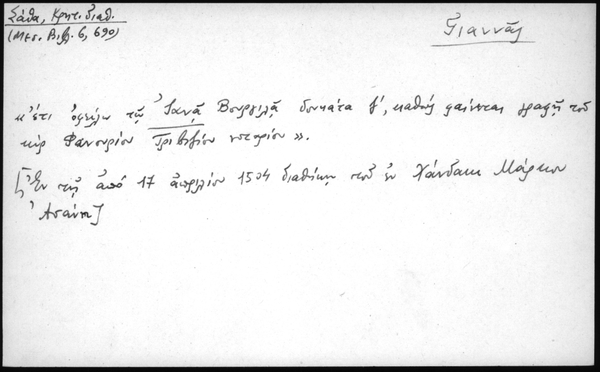 Σάθα, Κρητ. διαθ.
(Μεσ. Βιβλ. 6, 690)
Γιαννᾶς
κ' ἔτι ὀφείλω τῷ Ἰανᾷ Βουργιλᾷ δουκάτα γ', καθὼς φαίνεται γραφῇ τοῦ
κὺρ Φανουρίου Τριβιζίου νοταρίου ».
[Ἐν τῇ ἀπὸ 17 ἀπριλίου 1504 διαθήκῃ τοῦ ἐν Χάνδακι Μάρκου
Ἀσάντε]